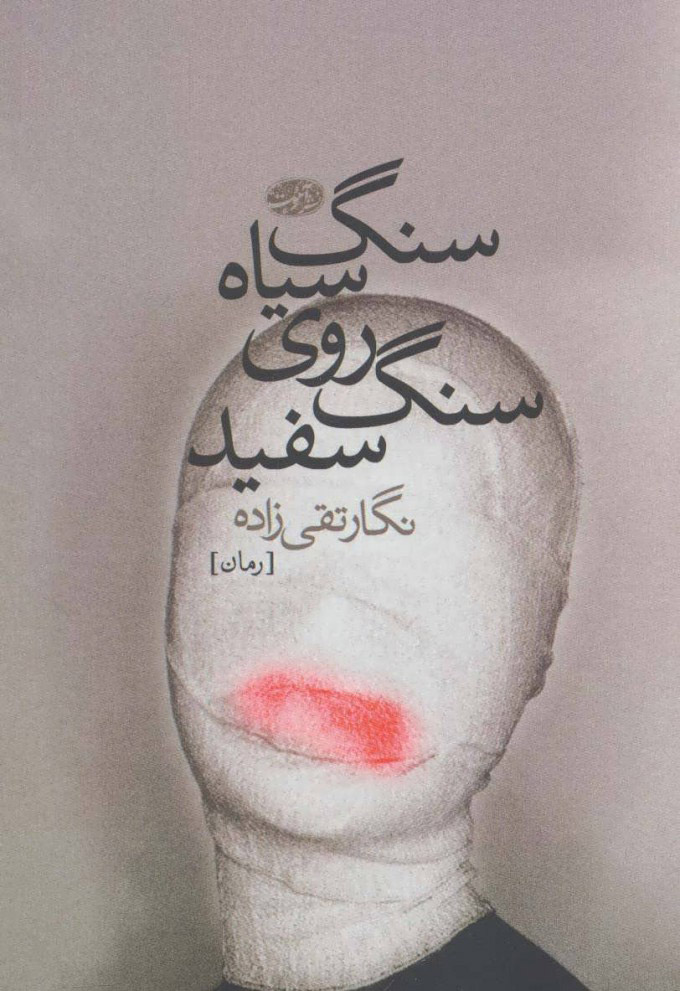 سنگ
سیاه
روی
سنگ
سفید
نگار تقی‌زاده
[رمان]